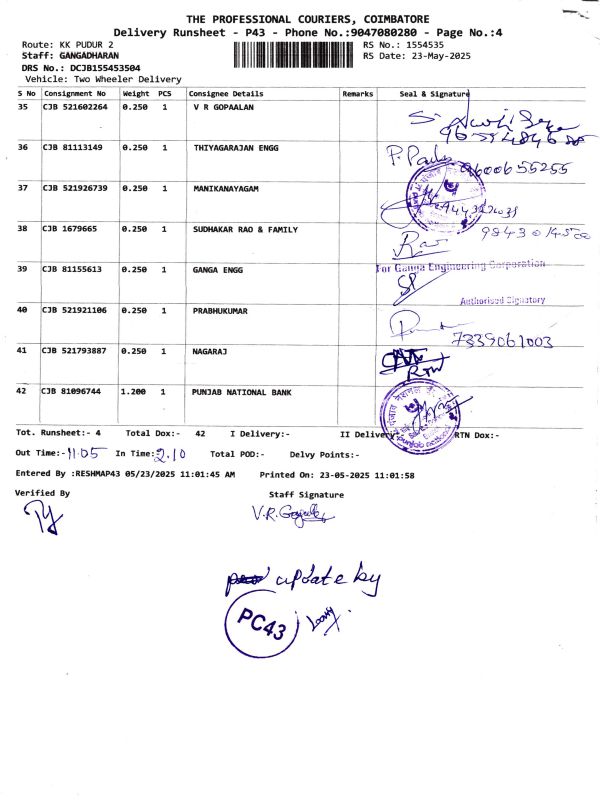 THE PROFESSIONAL COURIERS, COIMBATORE
Delivery Runsheet - P43 - Phone No.:9047080280 - Page No.:4
Route: KK PUDUR 2 RS No.: 1554535
Staff: GANGADHARAN RS Date: 23-May-2025
DRS No.: DCJB155453504
Vehicle: Two Wheeler Delivery
S No Consignment No Weight PCS Consignee Details Remarks Seal & Signature
35 CJB 521602264 0.250 1 V R GOPAALAN
36 CJB 81113149 0.250 1 THIYAGARAJAN ENGG
9600655255
37 CJB 521926739 0.250 1 MANIKANAYAGAM
38 CJB 1679665 0.250 1 SUDHAKAR RAO & FAMILY
Rao
39 CJB 81155613 0.250 1 GANGA ENGG
For Ganga Engineering Corporation
Authorised Signatory
40 CJB 521921106 0.250 1 PRABHUKUMAR
7339061003
41 CJB 521793887 0.250 1 NAGARAJ
RTN
42 CJB 81096744 1.200 1 PUNJAB NATIONAL BANK
Tot. Runsheet:- 4 Total Dox:- 42 I Delivery:- II Delivery:- RTN Dox:-
Out Time:- 11.05 In Time: 2.10 Total POD:- Delvy Points:-
Entered By :RESHMAP43 05/23/2025 11:01:45 AM Printed On: 23-05-2025 11:01:58
Verified By Staff Signature
update by
PC43